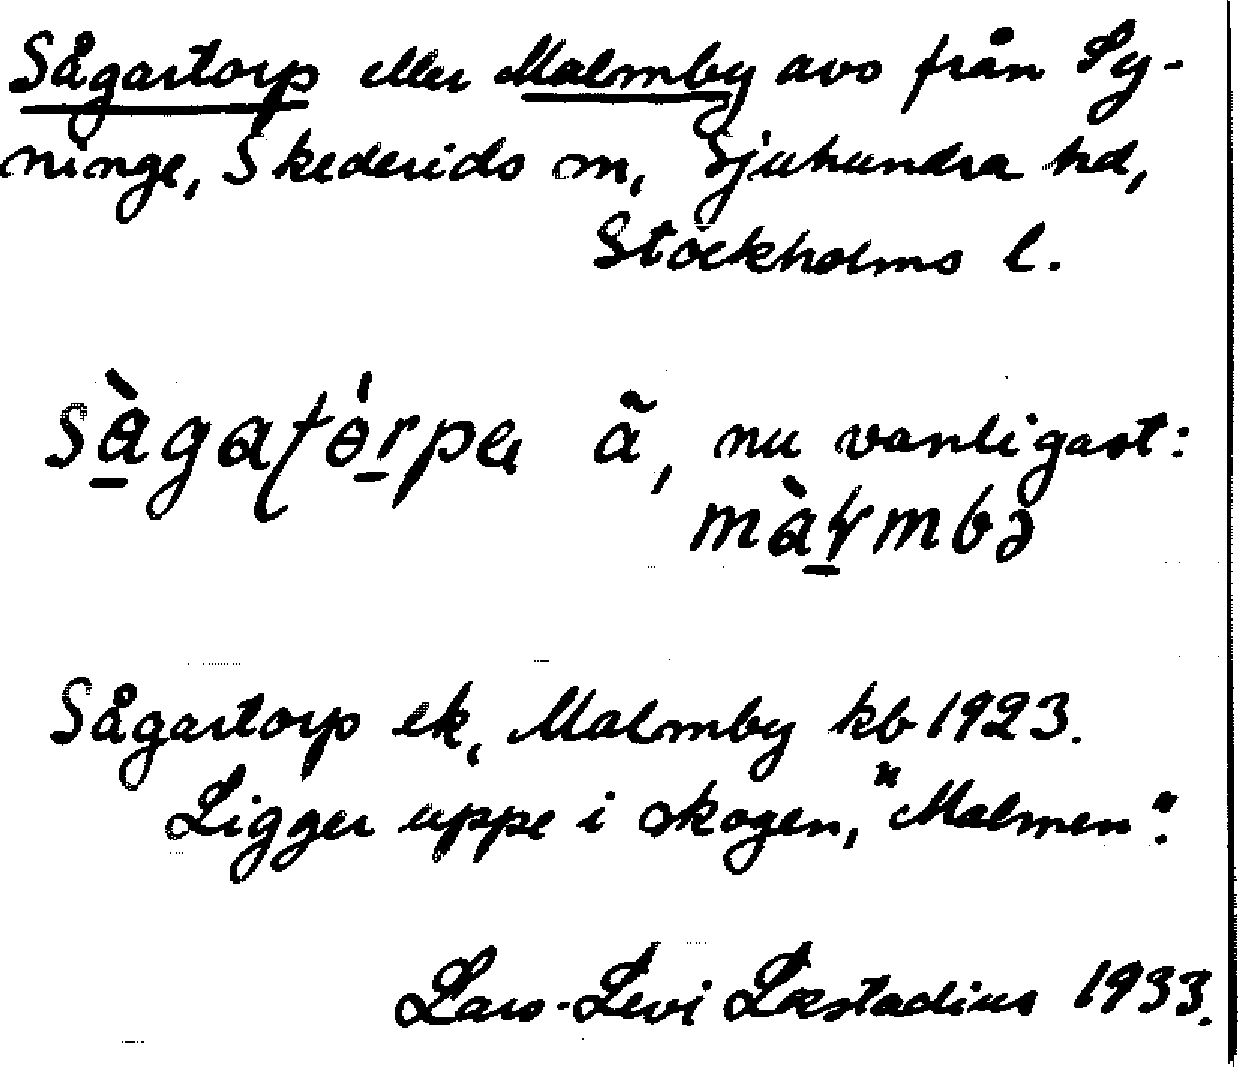 Sågartorp eller Malmby avs från Sy-
ninge, Skederids sn, Sjuhundra hd,
Stockholms l.
ã, nu vanligast:
Sågartorp ek, Malmby kb 1923.
Ligger uppe i skogen, "Malmen".
Lars-Levi Læstadius 1933.